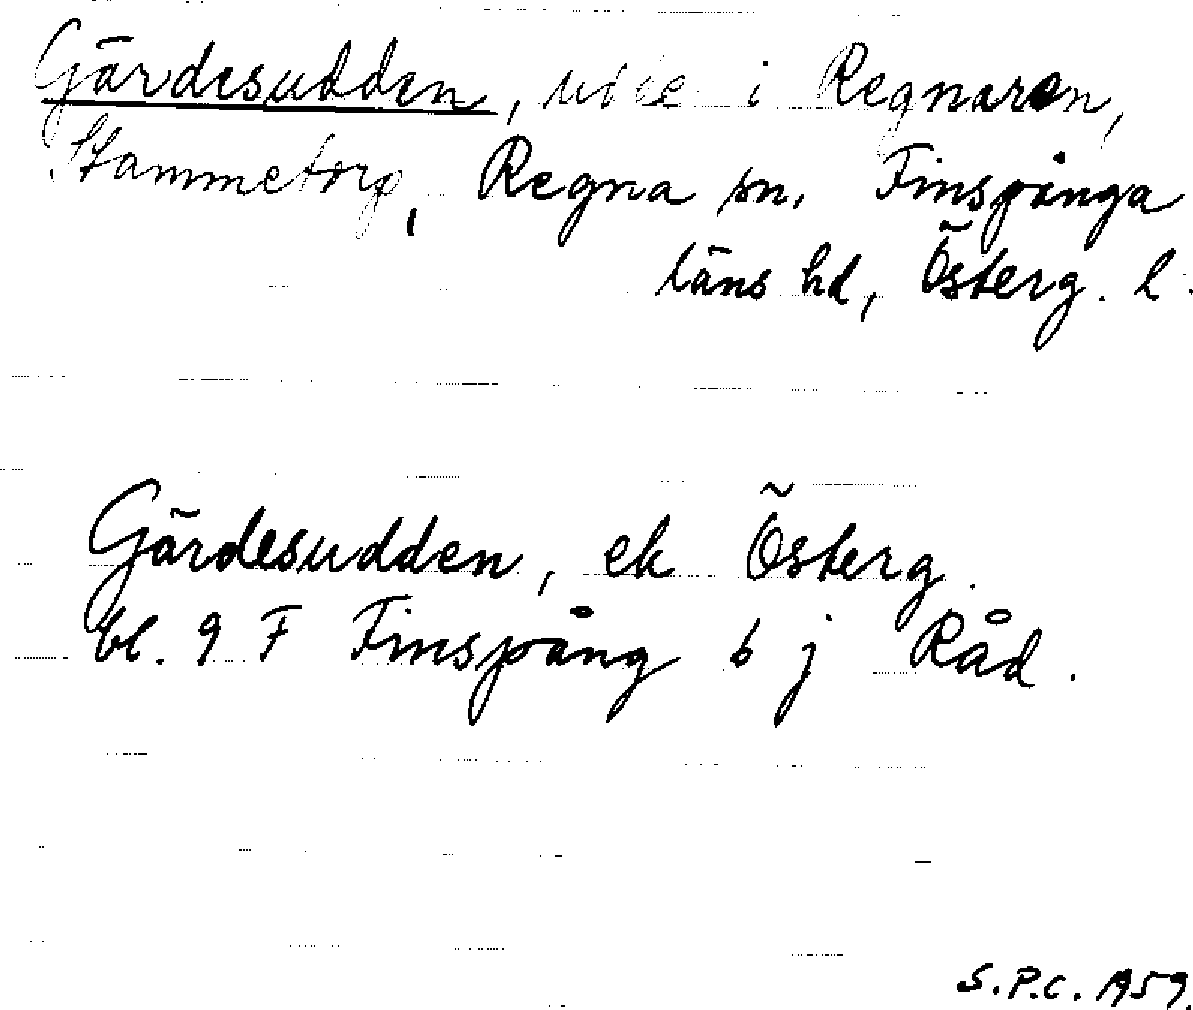 Gärdesudden, udde i Regnaren,
Stammetorp, Regna sn. Finspånga
läns hd, Österg. l.
Gärdesudden, ek Österg.
bl. 9 F Finspång 6 j Råd.
S.P.C. 1959.